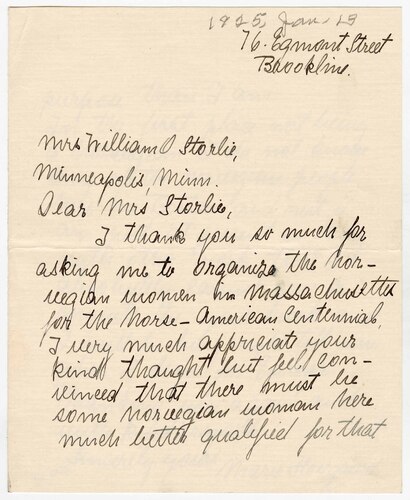 1925, Jan. 13
76. Egmont Street
Brookline.
Mrs William O Storlie,
Minneapolis, Minn.
Dear Mrs Storlie,
I thank you so much for
asking me to organize the Nor-
wegian women in Massachusetts
for the Norse-American Centennial.
I very much appriciate your
kind thought but feel con-
vinced that there must be
some Norwegian woman here
much better qualified for that